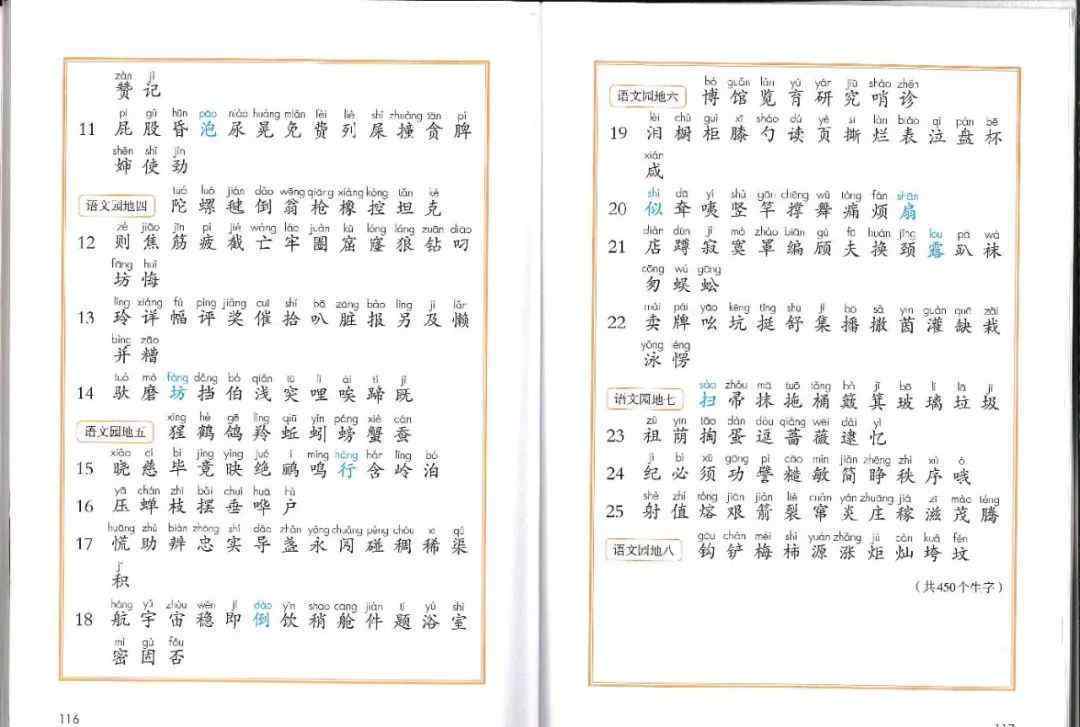 zàn jì
赞 记
pì gǔ hūn pāo niào huǎng miǎn fèi liè shǐ zhuàng tān pí
11 屁 股 昏 泡 尿 晃 免 费 列 屎 撞 贪 脾
shěn shǐ jìn
婶 使 劲
tuó luó jiàn dǎo wēng qiāng xiàng kòng tǎn kè
语文园地四 陀 螺 毽 倒 翁 枪 橡 控 坦 克
zé jiāo jīn pí jié wáng láo juàn kū lóng láng zuān diāo
12 则 焦 筋 疲 截 亡 牢 圈 窟 窿 狼 钻 叼
fāng huǐ
坊 悔
líng xiáng fú píng jiǎng cuī shí bā zāng bào lìng jí lǎn
13 玲 详 幅 评 奖 催 拾 叭 脏 报 另 及 懒
bìng zāo
并 糟
tuó mò fáng dǎng bó qiǎn tū lī āi tí jì
14 驮 磨 坊 挡 伯 浅 突 哩 唉 蹄 既
xīng hè gē líng qiū yǐn páng xiè cán
语文园地五 猩 鹤 鸽 羚 蚯 蚓 螃 蟹 蚕
xiǎo cí bì jìng yìng jué lí míng háng hán lǐng bó
15 晓 慈 毕 竟 映 绝 鹂 鸣 行 含 岭 泊
yā chán zhī bǎi chuí huā hù
16 压 蝉 枝 摆 垂 哗 户
huāng zhù biàn zhōng shí dǎo zhǎn yǒng chuǎng pèng chóu xī qú
17 慌 助 辨 忠 实 导 盏 永 闯 碰 稠 稀 渠
jī
积
háng yǔ zhòu wěn jí dào yǐn shāo cāng jiàn tí yù shì
18 航 宇 宙 稳 即 倒 饮 稍 舱 件 题 浴 室
mì gù fǒu
密 固 否
116
bó guǎn lǎn yù yán jiū shào zhěn
语文园地六 博 馆 览 育 研 究 哨 诊
lèi chú guì xī sháo dú yè sī làn biǎo qì pán bēi
19 泪 橱 柜 膝 勺 读 页 撕 烂 表 泣 盘 杯
xián
咸
shì dā yí shù gān chēng wǔ tòng fán shān
20 似 耷 咦 竖 竿 撑 舞 痛 烦 扇
diàn dūn jì mò zhào biān gù fū huàn jǐng lòu pā wà
21 店 蹲 寂 寞 罩 编 顾 夫 换 颈 露 趴 袜
cōng wú gōng
匆 蜈 蚣
mài pái yāo kēng tǐng shū jí bō sā yīn guàn quē zāi
22 卖 牌 吆 坑 挺 舒 集 播 撒 茵 灌 缺 栽
yǒng èng
泳 愣
sào zhǒu mā tuō tǒng bò jī bō lí lā jī
语文园地七 扫 帚 抹 拖 桶 簸 箕 玻 璃 垃 圾
zǔ yīn tāo dàn dòu qiáng wēi dǎi yì
23 祖 荫 掏 蛋 逗 蔷 薇 逮 忆
jì bì xū gōng pì cāo mǐn jiǎn zhēng zhì xù ó
24 纪 必 须 功 譬 糙 敏 简 睁 秩 序 哦
shè zhí róng jiān jiàn liè cuàn yán zhuāng jià zī mào téng
25 射 值 熔 艰 箭 裂 窜 炎 庄 稼 滋 茂 腾
gōu chǎn méi shì yuán zhǎng jù càn kuǎ fén
语文园地八 钩 铲 梅 柿 源 涨 炬 灿 垮 坟
（共450个生字）